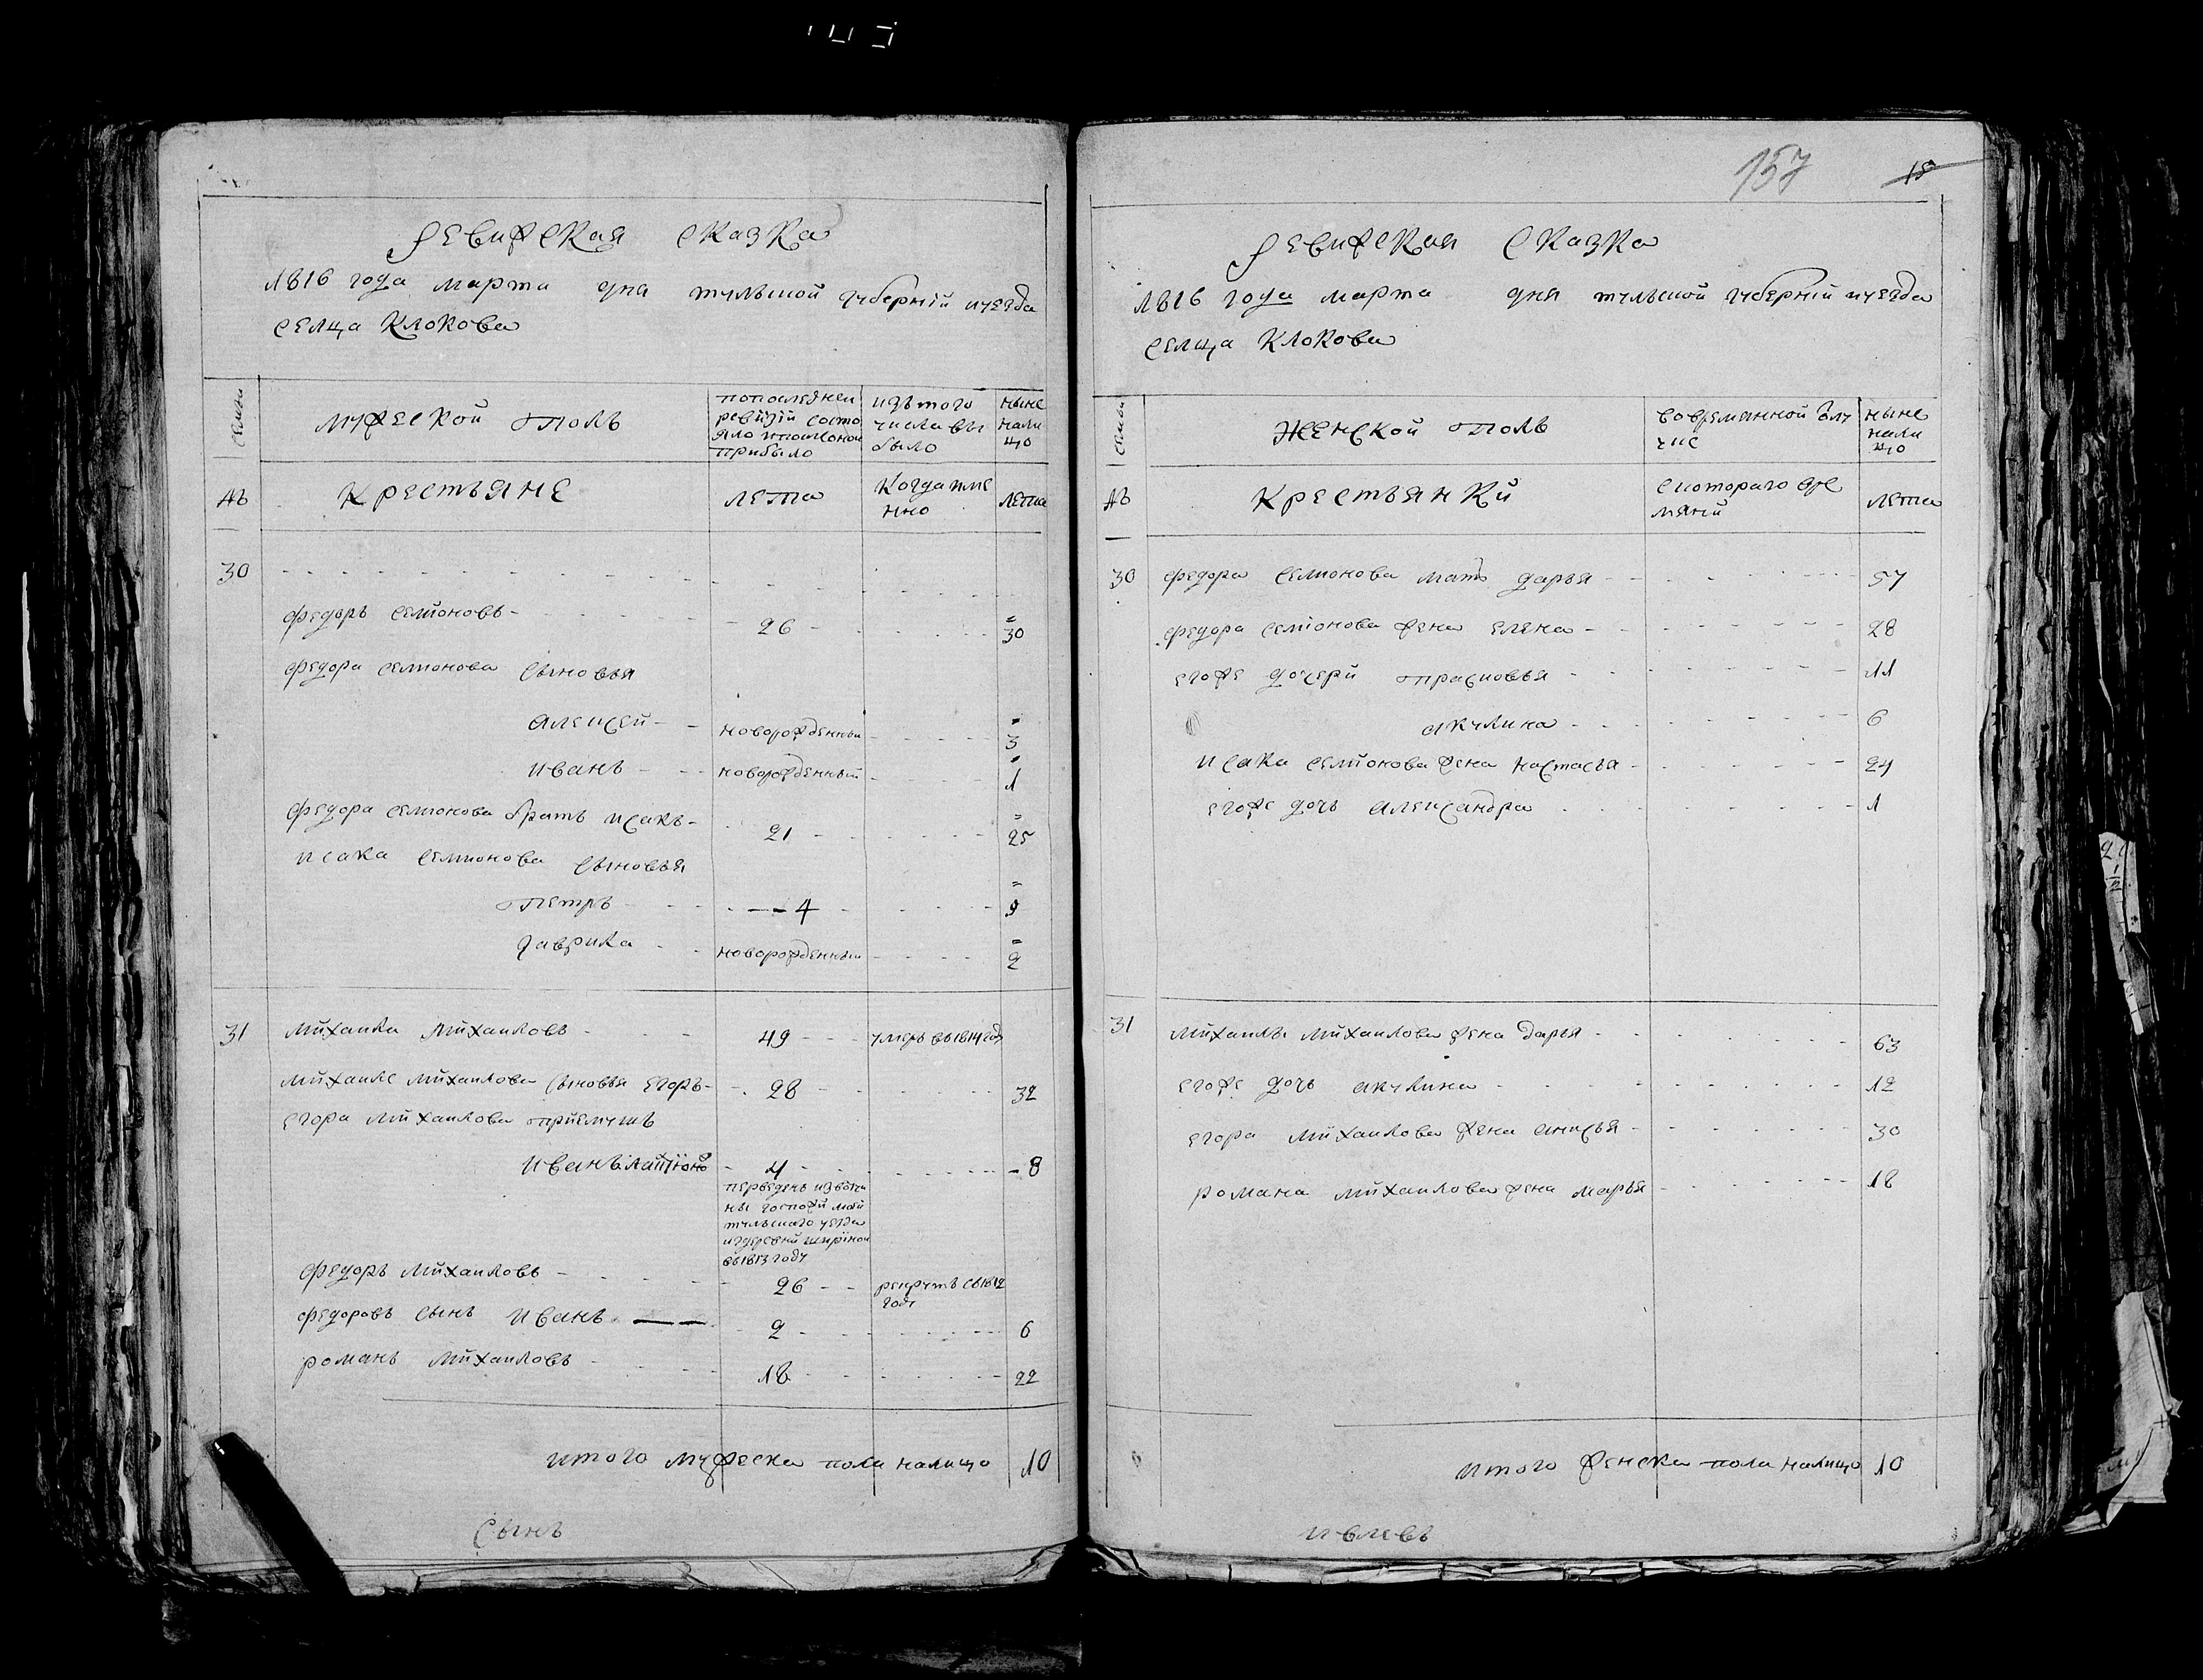 ревижская сказка
1816 года марта дня тульской губерніи и уезда
селца Клокова
семьи
мужеской полъ
попоследнеи
ревизіи состо
яло ипослонои
прибыло
изътого
числа вы
было
ныне
нали
цо
№
Крестьяне
лета
когда име
нно
лета
30
федоръ семионовъ 26 30
федора семионова сыновья
алексей новорожденныи 3
иванъ новорожденный 1
федора семионова братъ исакъ 21 25
исака семионова сыновья
петръ 4 9
гаврила новорожденныи 2
31 михаила михаиловъ 49 умеръ въ 1814 год
михаиле михаилова сыновья егоръ 28 32
егора михаилова приемышъ
иванъ 4 8
переведенъ извотчи
ны
тульскаго уезда
издеревни
въ 1813 году
федоръ михаиловъ 26 рекрутъ въ 1812
году
федоровъ сынъ иванъ 2 6
романъ михаиловъ 18 22
итого мужеска пола налицо 10
сынъ
157
15
ревижская сказка
1816 года марта дня тульской губерніи и уезда
селца Клокова
семьи
женской полъ
вовременной отлу
чке
ныне
нали
цо
№
Крестьянки
скотораго вре
мяни
лета
30 федора семионова мать дарья 57
федора семионова жена елена 28
егоже дочери прасковья 11
акулина 6
исака семионова жена настасья 24
егоже дочь александра 1
31 михаилы михаилова жена дарья 63
егоже дочь акулина 12
егора михаилова жена анисья 30
романа михаилова жена марья 18
итого женска пола налицо 10
ивлевъ